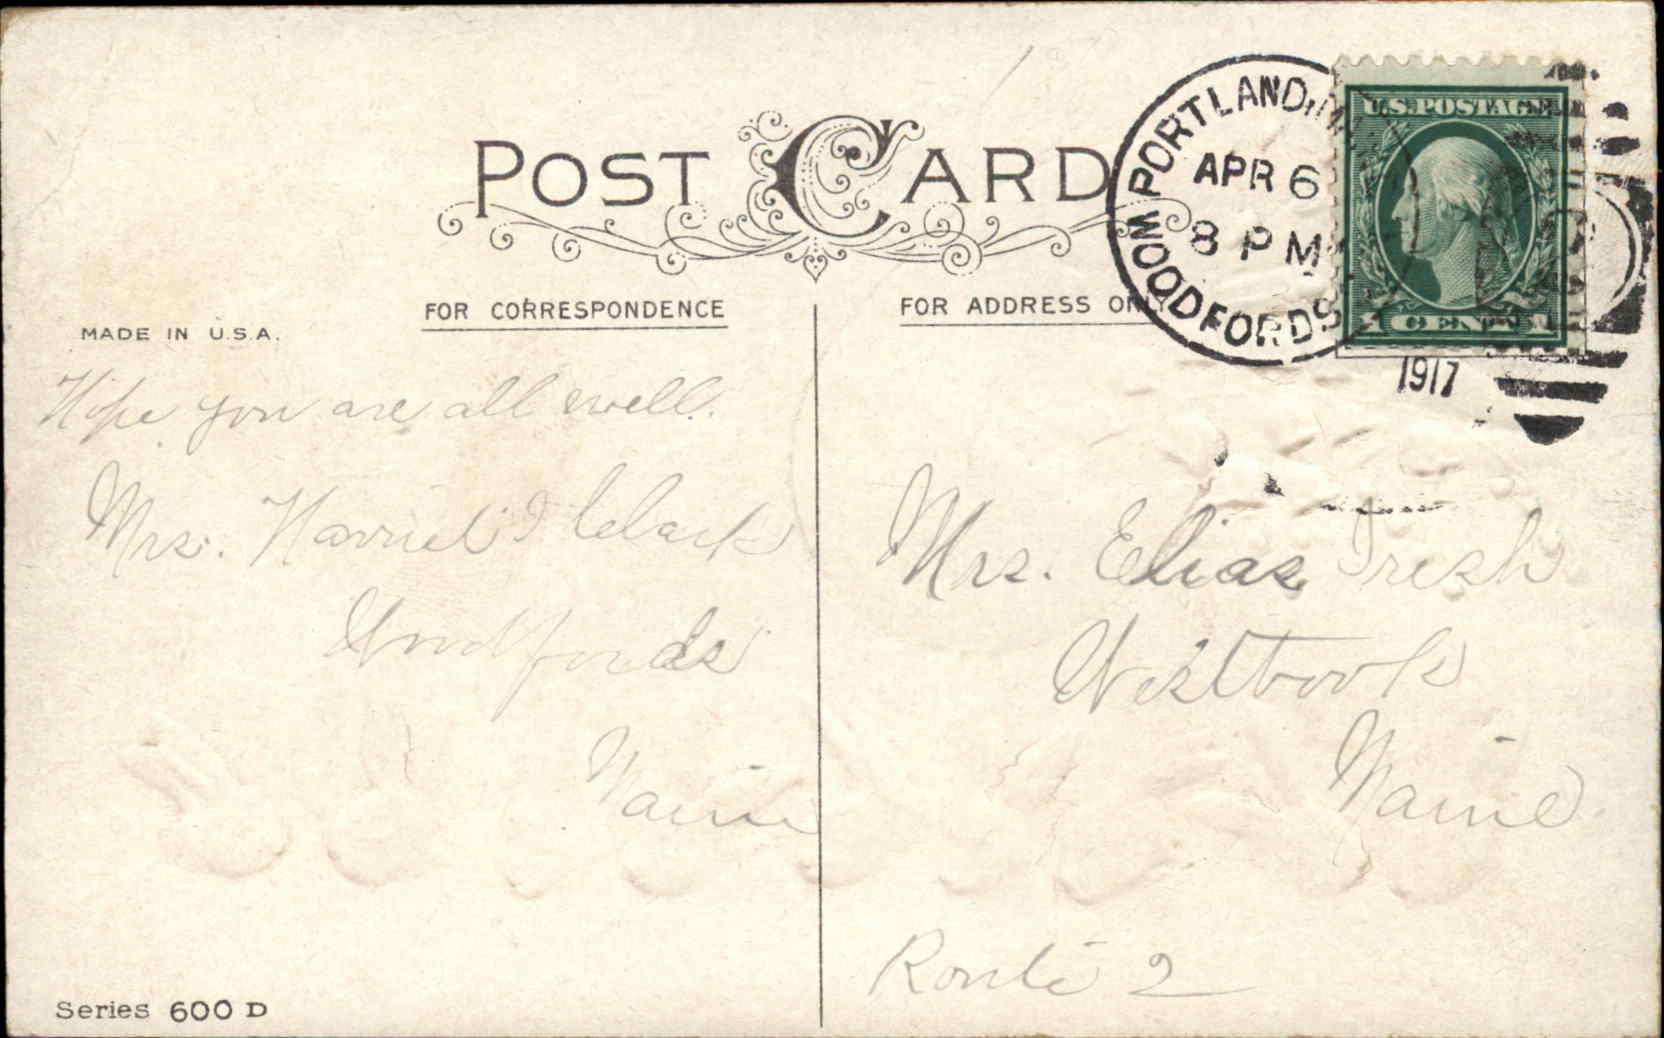 POST CARD
PORTLAND, ME.
APR 6
8 PM
WOODFORDS
1917
U.S. POSTAGE
1 CENT 1
FOR CORRESPONDENCE
FOR ADDRESS ONLY
MADE IN U.S.A.
Hope you are all well.
Mrs. Harriet I Clark
Woodfords
Maine
Mrs. Elias Tresh
Westbrook
Maine
Route 2
Series 600 D